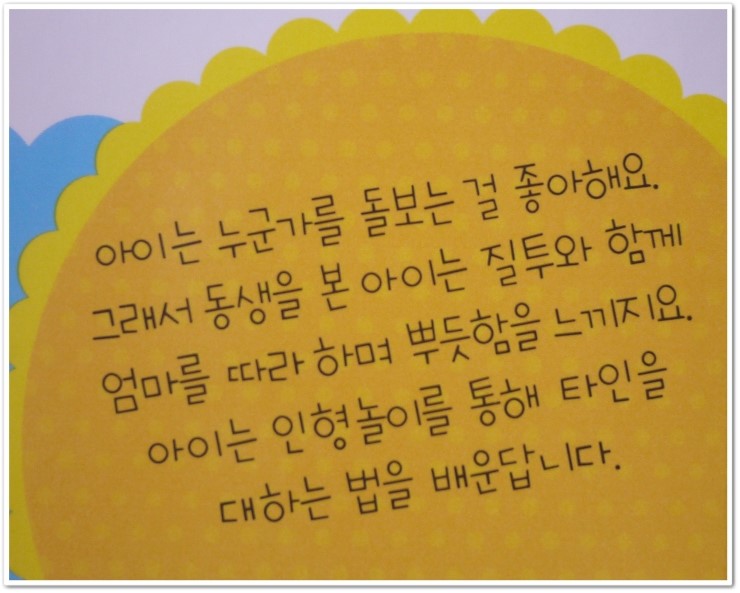 아이는 누군가를 돌보는 걸 좋아해요.
그래서 동생을 본 아이는 질투와 함께
엄마를 따라 하며 뿌듯함을 느끼지요.
아이는 인형놀이를 통해 타인을
대하는 법을 배운답니다.